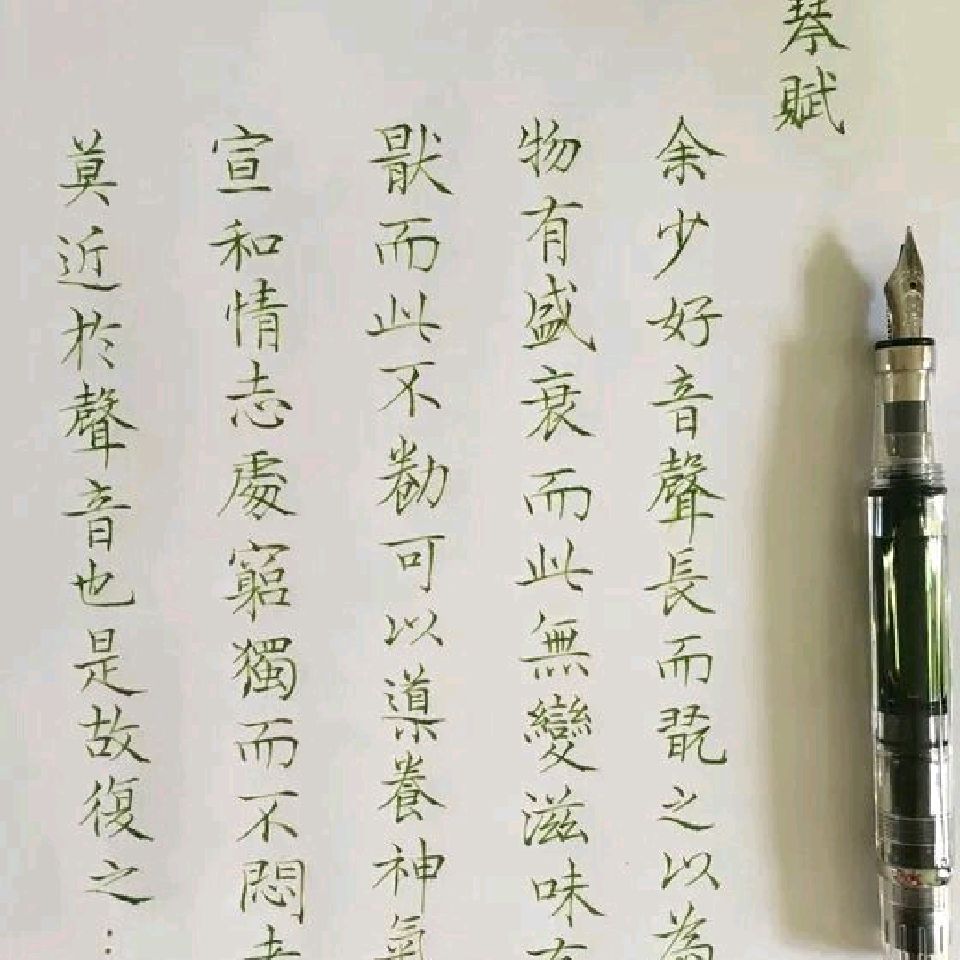 琴賦
余少好音聲長而翫之以為
物有盛衰而此無變滋味有
猒而此不勌可以導養神氣
宣和情志處窮獨而不悶者
莫近於聲音也是故復之…